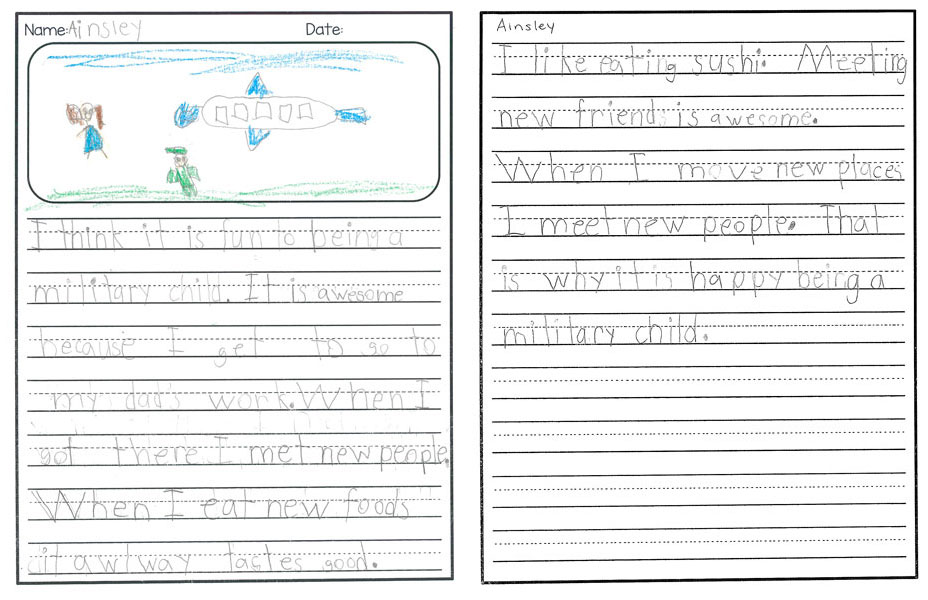 Name: Ainsley Date:
I think it is fun to being a
military child. It is awesome
because I get to go to
my dad's work. When I
got there I met new people.
When I eat new foods
it awlway tastes good.
Ainsley
I like eating sushi. Meeting
new friends is awesome.
When I move new places
I meet new people. That
is why it is happy being a
military child.